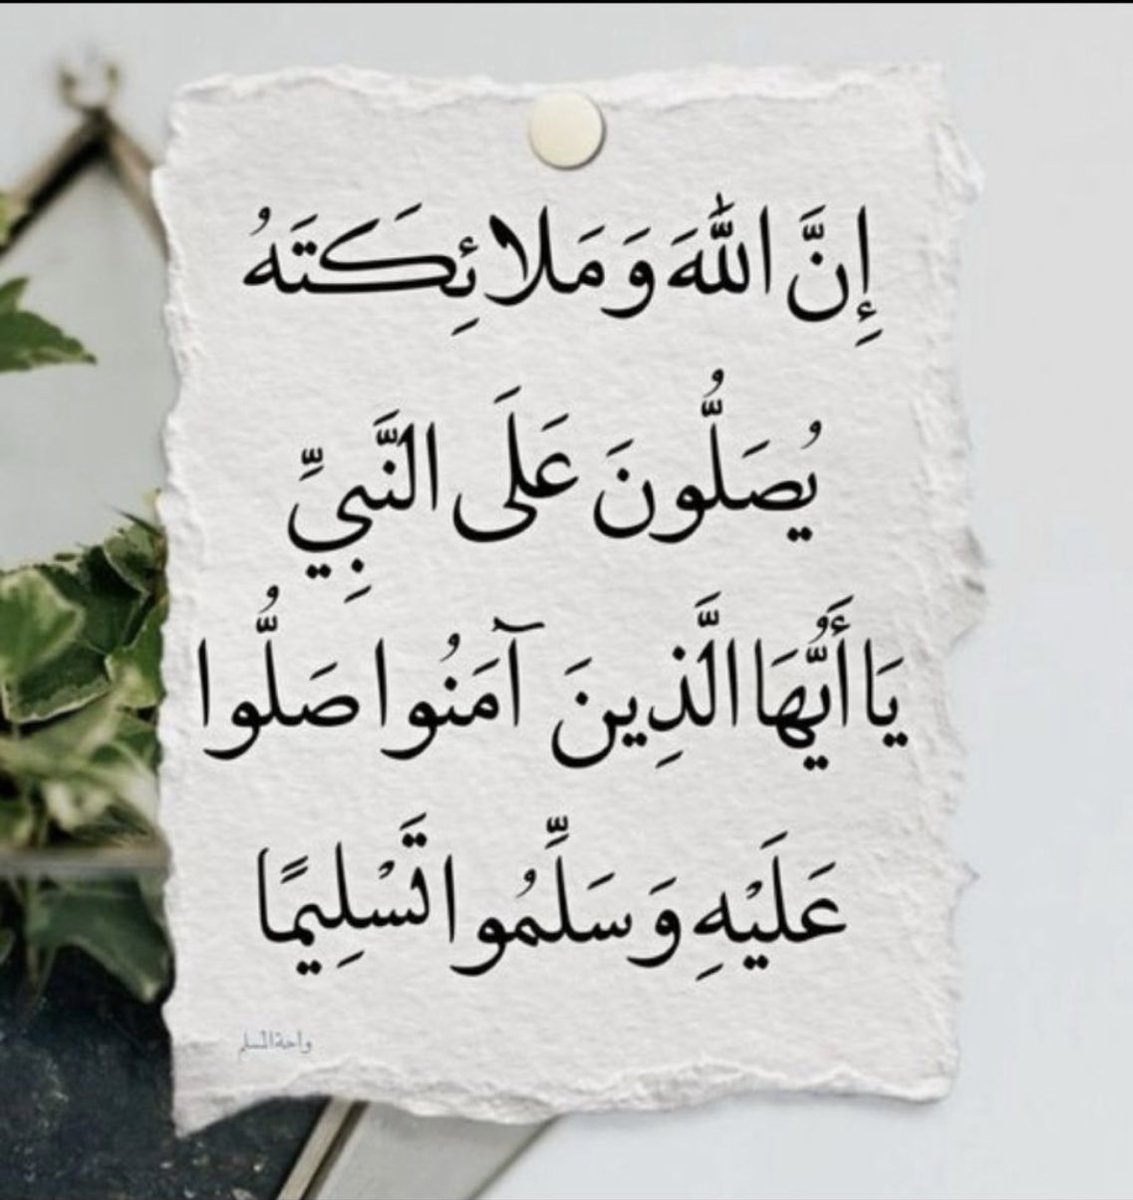 إِنَّ اللَّهَ وَمَلَائِكَتَهُ
يُصَلُّونَ عَلَى النَّبِيِّ
يَا أَيُّهَا الَّذِينَ آمَنُوا صَلُّوا
عَلَيْهِ وَسَلِّمُوا تَسْلِيمًا
واحة المسلم